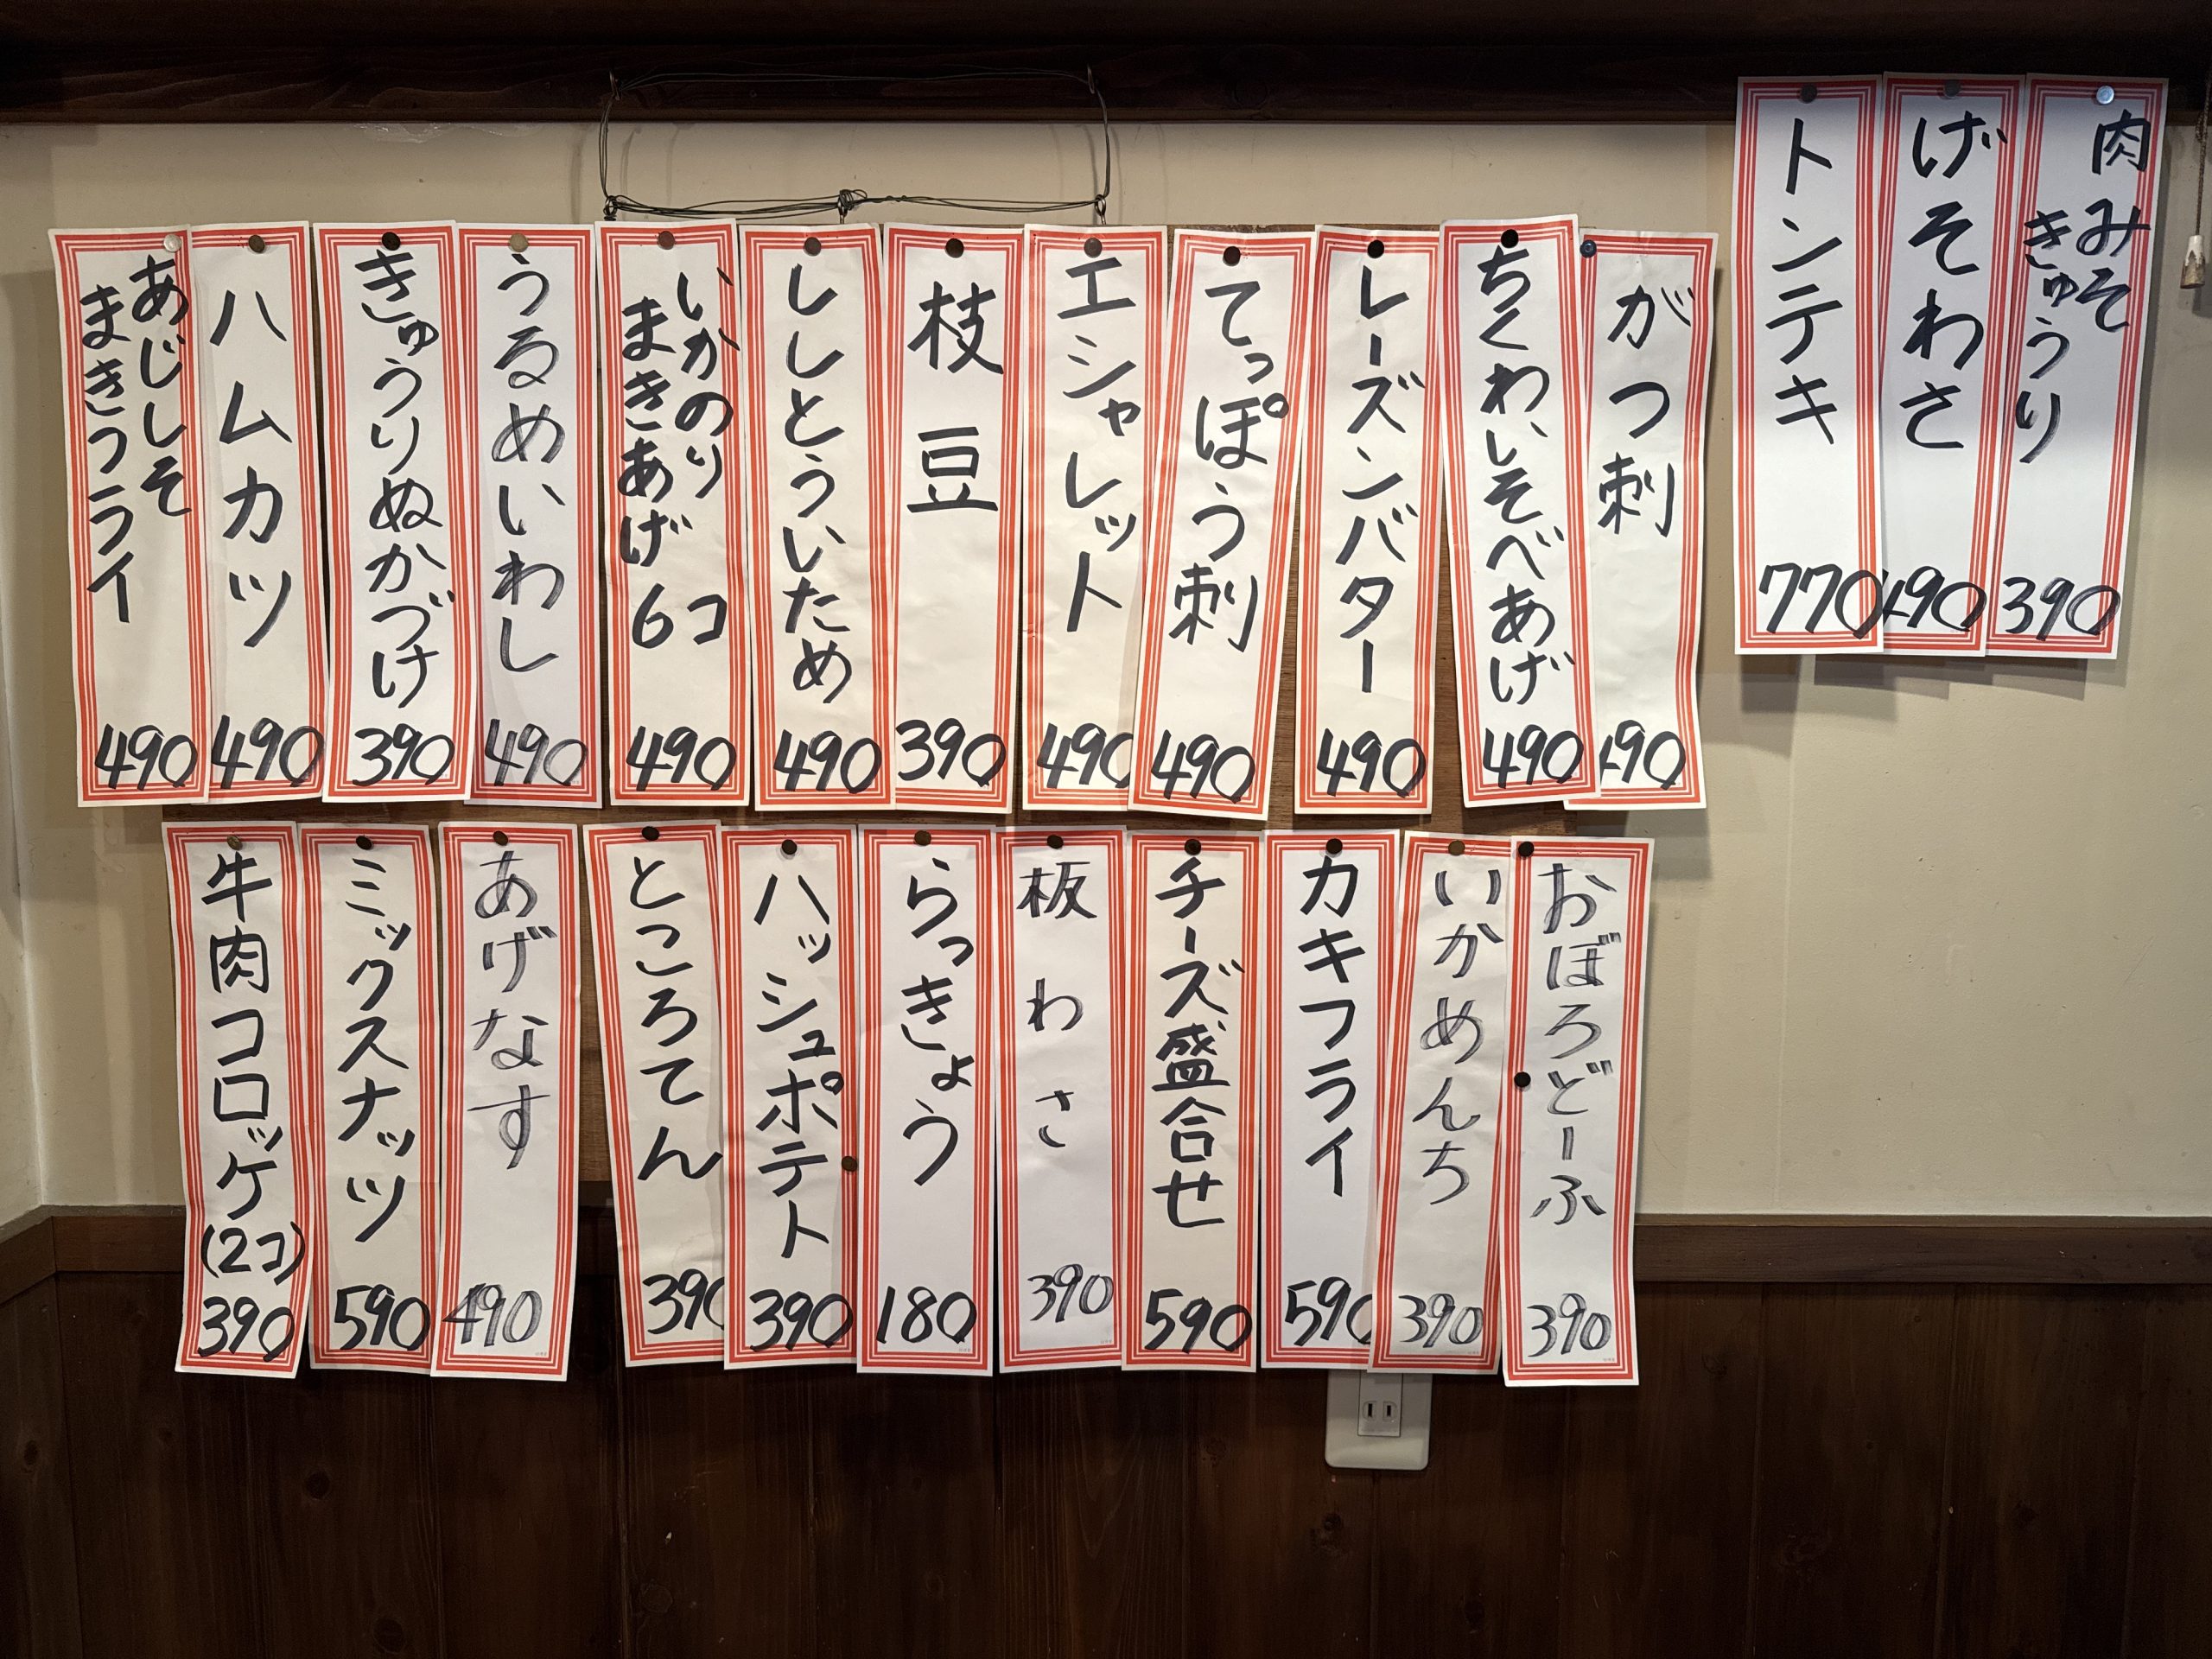 肉みそ
きゅうり
390
げそわさ
490
トンテキ
770
がつ刺
490
ちくわ、しそべあげ
490
レーズンバター
490
てっぽう刺
490
エシャレット
490
枝豆
390
ししとういため
490
いかのり
まきあげ 6コ
490
うるめいわし
490
きゅうりぬかづけ
390
ハムカツ
490
あじしそ
まきフライ
490
おぼろどーふ
390
いかめんち
390
カキフライ
590
チーズ盛合せ
590
板わさ
390
らっきょう
180
ハッシュポテト
390
ところてん
390
あげなす
490
ミックスナッツ
590
牛肉コロッケ
(2コ)
390